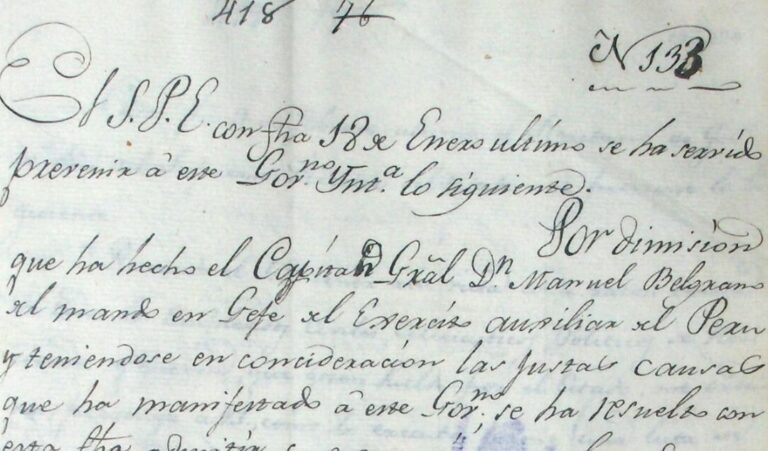 418 76
N 133
El S. P. E. con fha 18 de Enero ultimo se ha servido
prevenir â este Gor.no Ynt.a lo siguiente.
Por dimision
que ha hecho el Capitan Grâl Dn Manuel Belgrano
del mando en Gefe del Exercito auxiliar del Peru
y teniendose en concideración las justas causas
que ha manifestado â este Gor.no, se ha resuelto con
esta fha admitir